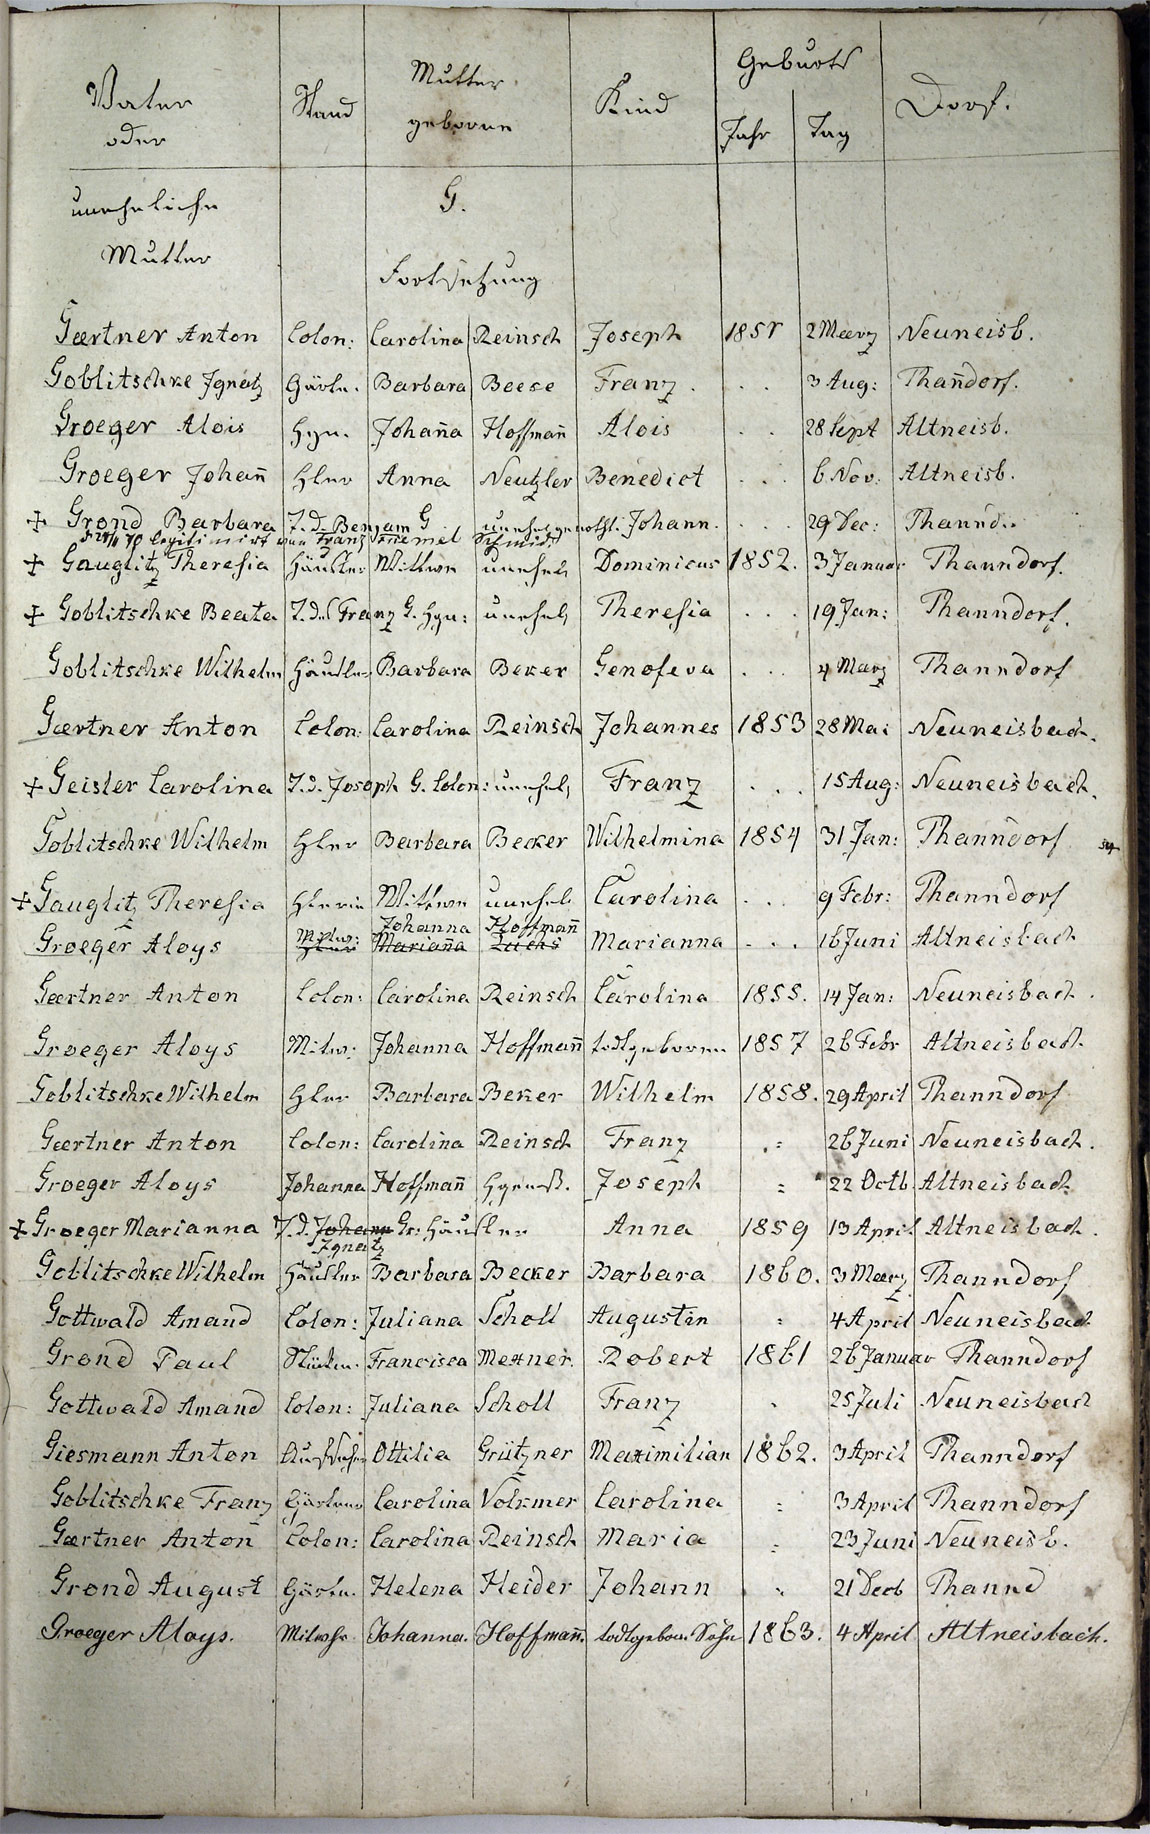 Vater Stand Mutter Kind Geburts Dorf.
oder geborene Jahr Tag
uneheliche G.
Mutter
Fortsetzung
Gærtner Anton Colon: Carolina Reinsch Joseph 1851 2 Maerz Neuneisb.
Goblitschke Ignatz Gärtn. Barbara Beese Franz . . . 3 Aug: Thañdorf.
Groeger Alois Johaña Hoffmañ Alois . . . 28 Sept Altneisb.
Groeger Johañ Hler Anna Neutzler Benedict . . . 6 Nov: Altneisb.
+ Grond Barbara T. d. Benjam G. Johann. . . . 29 Dec: Thannd..
legitimirt von Franz Schmidt
+ Gauglitz Theresia Häusler Wittwe unehel Dominicus 1852. 3 Januar Thanndorf.
+ Goblitschke Beata T. d. Franz G. unehel Theresia . . . 19 Jan: Thanndorf.
Goblitschke Wilhelm Häusler Barbara Beker Genofeva . . . 4 Marz Thanndorf
Gærtner Anton Colon: Carolina Reinsch Johannes 1853 28 Mai Neuneisbach.
+ Geisler Carolina T. d. Joseph G. Colon: unehel Franz . . . 15 Aug: Neuneisbach.
Goblitschke Wilhelm Hler Barbara Becker Wilhelmina 1854 31 Jan: Thanndorf
+ Gauglitz Theresia Hlerin Wittwe unehel Carolina . . . 9 Febr: Thanndorf
Johanna Hoffmañ
Groeger Aloys Mariaña Luchs Marianna . . . 16 Juni Altneisbach
Gærtner Anton Colon: Carolina Reinsch Carolina 1855. 14 Jan: Neuneisbach.
Groeger Aloys Mitw: Johanna Hoffmañ todtgeboren 1857 26 Febr Altneisbach
Goblitschke Wilhelm Hler Barbara Beker Wilhelm 1858. 29 April Thanndorf
Gærtner Anton Colon: Carolina Reinsch Franz = 26 Juni Neuneisbach.
Groeger Aloys Johanna Hoffmañ Joseph = 22 Octb. Altneisbach
+ Groeger Marianna T. d. Johann Gr: Häusler Anna 1859 13 April Altneisbach.
Ignatz
Goblitschke Wilhelm Häusler Barbara Becker Barbara 1860. 3 Maerz Thanndorf
Gottwald Amand Colon: Juliana Scholl Augustin = 4 April Neuneisbach
Grond Paul Francisca Mexner. Robert 1861 26 Januar Thanndorf
Gottwald Amand Colon: Juliana Scholl Franz 25 Juli Neuneisbach
Giesmann Anton Ottilia Grützner Maximilian 1862. 3 April Thanndorf
Goblitschke Franz Gärtner Carolina Volkmer Carolina = 3 April Thanndorf
Gærtner Anton Colon: Carolina Reinsch Maria = 23 Juni Neuneisb.
Grond August Gärtn. Helena Heider Johann = 21 Decb Thannd
Groeger Aloys. Mitwhr Johanna. Hoffmañ. todtgebor. Sohn 1863. 4 April Altneisbach.